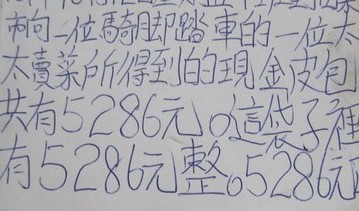 向一位騎腳踏車的一位太
太賣菜所得到的現金皮包
共有5286元。這袋子裡
有5286元整。5286元